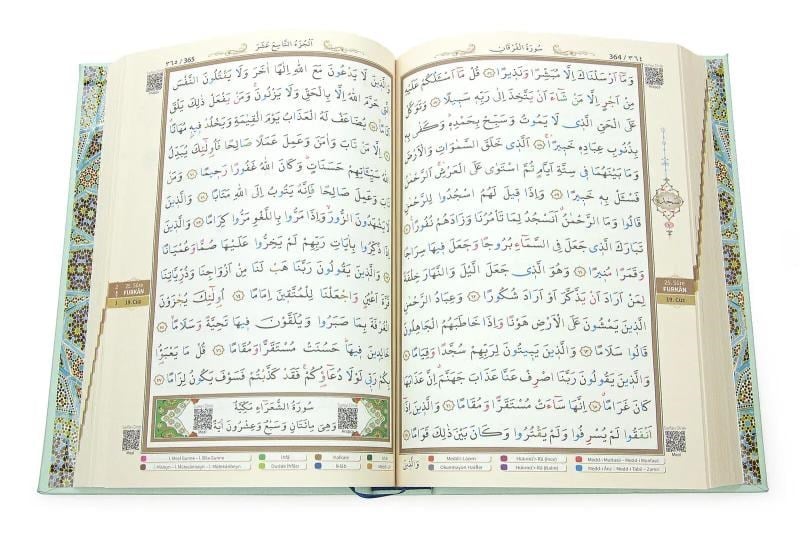 سُورَةُ الْفُرْقَانِ
364 / ٣٦٤
وَمَٓا اَرْسَلْنَاكَ اِلَّا مُبَشِّرًا وَنَذِيرًا ﴿٥٦﴾ قُلْ مَٓا اَسْـَٔلُكُمْ عَلَيْهِ
مِنْ اَجْرٍ اِلَّا مَنْ شَٓاءَ اَنْ يَتَّخِذَ اِلٰى رَبِّهِ سَبِيلًا ﴿٥٧﴾ وَتَوَكَّلْ
عَلَى الْحَيِّ الَّذِي لَا يَمُوتُ وَسَبِّحْ بِحَمْدِهِ وَكَفٰى بِهِ
بِذُنُوبِ عِبَادِهِ خَبِيرًا ﴿٥٨﴾ اَلَّذِي خَلَقَ السَّمٰوَاتِ وَالْاَرْضَ
وَمَا بَيْنَهُمَا فِي سِتَّةِ اَيَّامٍ ثُمَّ اسْتَوٰى عَلَى الْعَرْشِ اَلرَّحْمٰنُ
فَسْـَٔلْ بِهِ خَبِيرًا ﴿٥٩﴾ وَاِذَا قِيلَ لَهُمُ اسْجُدُوا لِلرَّحْمٰنِ
قَالُوا وَمَا الرَّحْمٰنُ اَنَسْجُدُ لِمَا تَأْمُرُنَا وَزَادَهُمْ نُفُورًا ﴿٦٠﴾
تَبَارَكَ الَّذِي جَعَلَ فِي السَّمَٓاءِ بُرُوجًا وَجَعَلَ فِيهَا سِرَاجًا
وَقَمَرًا مُنِيرًا ﴿٦١﴾ وَهُوَ الَّذِي جَعَلَ الَّيْلَ وَالنَّهَارَ خِلْفَةً
لِمَنْ اَرَادَ اَنْ يَذَّكَّرَ اَوْ اَرَادَ شُكُورًا ﴿٦٢﴾ وَعِبَادُ الرَّحْمٰنِ
الَّذِينَ يَمْشُونَ عَلَى الْاَرْضِ هَوْنًا وَاِذَا خَاطَبَهُمُ الْجَاهِلُونَ
قَالُوا سَلَامًا ﴿٦٣﴾ وَالَّذِينَ يَبِيتُونَ لِرَبِّهِمْ سُجَّدًا وَقِيَامًا ﴿٦٤﴾
وَالَّذِينَ يَقُولُونَ رَبَّنَا اصْرِفْ عَنَّا عَذَابَ جَهَنَّمَ اِنَّ عَذَابَهَا
كَانَ غَرَامًا ﴿٦٥﴾ اِنَّهَا سَٓاءَتْ مُسْتَقَرًّا وَمُقَامًا ﴿٦٦﴾ وَالَّذِينَ اِذَٓا
اَنْفَقُوا لَمْ يُسْرِفُوا وَلَمْ يَقْتُرُوا وَكَانَ بَيْنَ ذٰلِكَ قَوَامًا ﴿٦٧﴾
25. Sûre
FURKÂN
19. Cüz
Medd-i Lâzım
Okunmayan Harfler
Hükmü'r-Râ (İnce)
Hükmü'r-Râ (Kalın)
Medd-i Muttasıl - Medd-i Munfasıl
Medd-i Ârız - Medd-i Tabiî - Zamir
٣٦٥ / 365
اَلْجُزْءُ التَّاسِعُ عَشَرَ
وَالَّذِينَ لَا يَدْعُونَ مَعَ اللّٰهِ اِلٰهًا اٰخَرَ وَلَا يَقْتُلُونَ النَّفْسَ
الَّتِي حَرَّمَ اللّٰهُ اِلَّا بِالْحَقِّ وَلَا يَزْنُونَ وَمَنْ يَفْعَلْ ذٰلِكَ يَلْقَ
اَثَامًا ﴿٦٨﴾ يُضَاعَفْ لَهُ الْعَذَابُ يَوْمَ الْقِيٰمَةِ وَيَخْلُدْ فِيهِ مُهَانًا
﴿٦٩﴾ اِلَّا مَنْ تَابَ وَاٰمَنَ وَعَمِلَ عَمَلًا صَالِحًا فَاُو۬لٰٓئِكَ يُبَدِّلُ
اللّٰهُ سَيِّـَٔاتِهِمْ حَسَنَاتٍ وَكَانَ اللّٰهُ غَفُورًا رَحِيمًا ﴿٧٠﴾ وَمَنْ
تَابَ وَعَمِلَ صَالِحًا فَاِنَّهُ يَتُوبُ اِلَى اللّٰهِ مَتَابًا ﴿٧١﴾ وَالَّذِينَ
لَا يَشْهَدُونَ الزُّورَ وَاِذَا مَرُّوا بِاللَّغْوِ مَرُّوا كِرَامًا ﴿٧٢﴾ وَالَّذِينَ
اِذَا ذُكِّرُوا بِاٰيَاتِ رَبِّهِمْ لَمْ يَخِرُّوا عَلَيْهَا صُمًّا وَعُمْيَانًا
﴿٧٣﴾ وَالَّذِينَ يَقُولُونَ رَبَّنَا هَبْ لَنَا مِنْ اَزْوَاجِنَا وَذُرِّيَّاتِنَا
قُرَّةَ اَعْيُنٍ وَاجْعَلْنَا لِلْمُتَّقِينَ اِمَامًا ﴿٧٤﴾ اُو۬لٰٓئِكَ يُجْزَوْنَ
الْغُرْفَةَ بِمَا صَبَرُوا وَيُلَقَّوْنَ فِيهَا تَحِيَّةً وَسَلَامًا ﴿٧٥﴾
خَالِدِينَ فِيهَا حَسُنَتْ مُسْتَقَرًّا وَمُقَامًا ﴿٧٦﴾ قُلْ مَا يَعْبَؤُ۬ا
بِكُمْ رَبِّي لَوْلَا دُعَٓاؤُ۬كُمْ فَقَدْ كَذَّبْتُمْ فَسَوْفَ يَكُونُ لِزَامًا ﴿٧٧﴾
سُورَةُ الشُّعَرَٓاءِ مَكِّيَّةٌ
وَهِيَ مِائَتَانِ وَسَبْعٌ وَعِشْرُونَ اٰيَةً
25. Sûre
FURKÂN
19. Cüz
İzhâr
Dudak Harfleri
Kalkale
İklâb